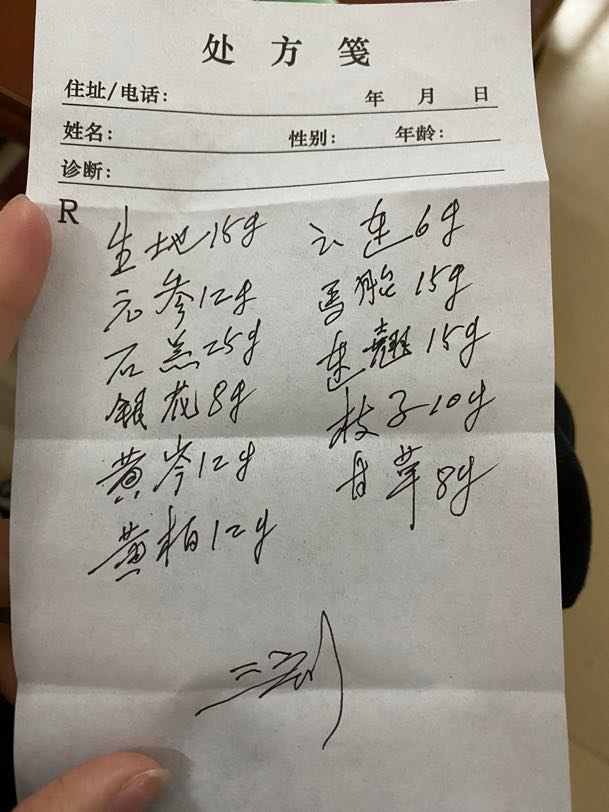 处方笺
住址/电话： 年 月 日
姓名： 性别： 年龄：
诊断：
R
生地15g 云连6g
元参12g 马胎15g
石羔25g 连翘15g
银花8g 枝子10g
黄芩12g 甘草8g
黄柏12g
三剂